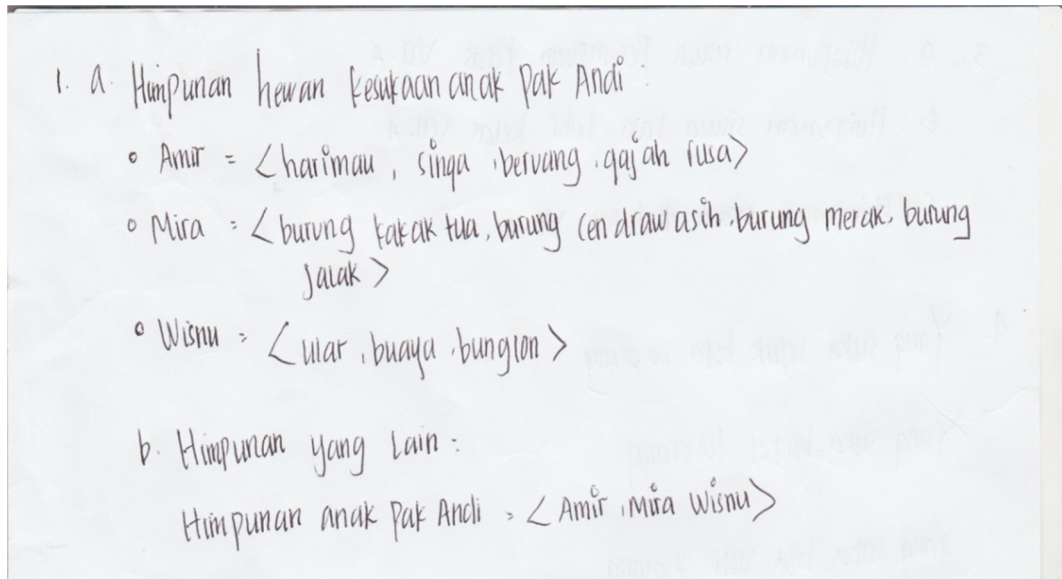 1. a. Himpunan hewan kesukaan anak Pak Andi.
° Amir = <harimau, singa, beruang, gajah rusa>
° Mira = <burung kakak tua, burung cendrawasih, burung merak, burung
jalak>
° Wisnu = <ular, buaya, bunglon>
b. Himpunan yang lain :
Himpunan anak Pak Andi = <Amir, Mira Wisnu>